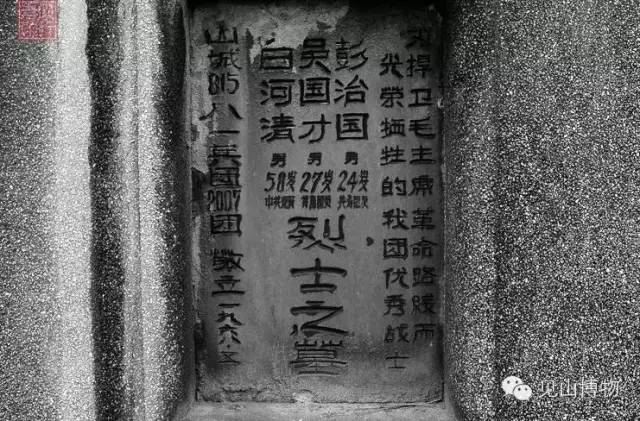 为捍卫毛主席革命路线而
光荣牺牲的我团优秀战士
彭治国 男 24岁 共青团员
吴国才 男 27岁 共青团员
白河清 男 58岁 中共党员
烈士之墓
山城815八一兵团2007团 敬立一九六八.五
见山博物